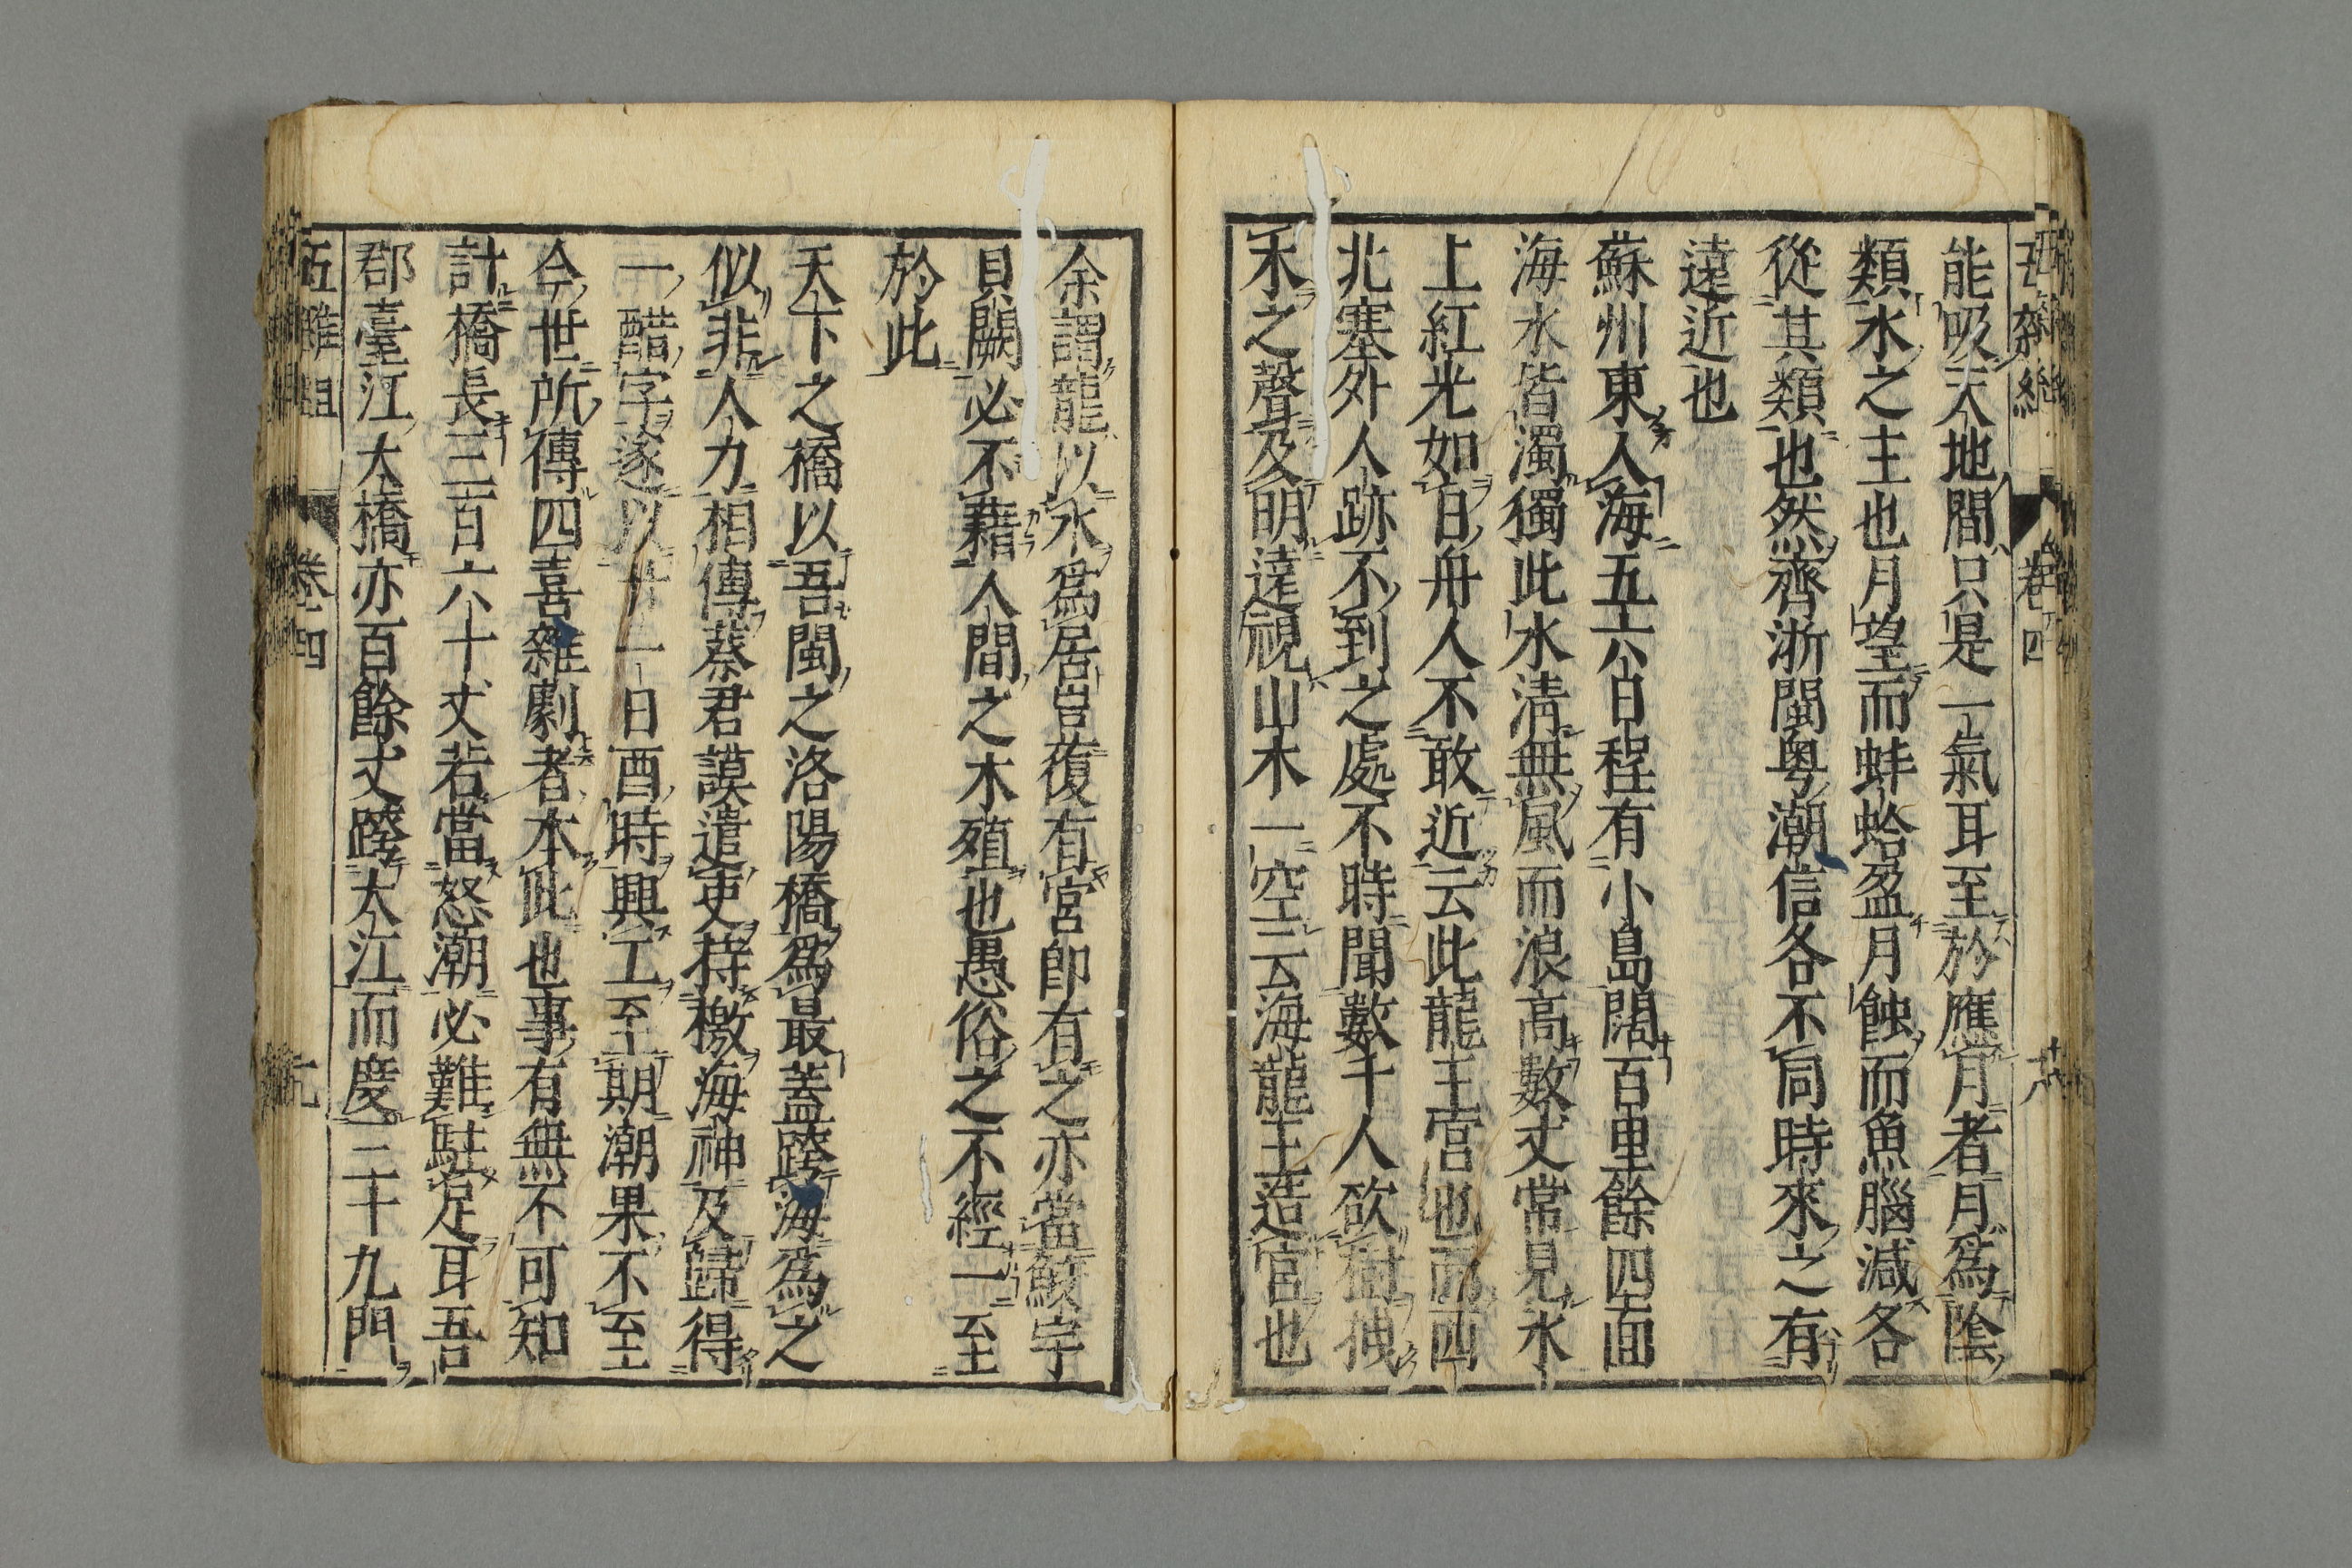 能吸天地間只是一氣耳至於應月者月為陰
類水之主也月望而蚌蛤盈月蝕而魚腦減各
從其類也然齊浙閩粤潮信各不同時來之有
遠近也
蘇州東入海五六日程有小島闊百里餘四面
海水皆濁獨此水清無風而浪高數丈常見水
上紅光如日舟人不敢近云此龍王宮也而西
北塞外人跡不到之處不時聞數千人砍樹拽
木之聲及明遠視山木一空云海龍王造宮也
卷四
十八
余謂龍以水為居豈復有宮即有之亦當鮫宇
貝闕必不藉人間之木殖也愚俗之不經一至
於此
天下之橋以吾閩之洛陽橋為最蓋跨海為之
似非人力相傳蔡君謨遣吏持檄海神及歸得
一醋字遂以廿一日酉時興工至期潮果不至
今世所傳四喜雜劇者本此也事有無不可知
計橋長三百六十丈若當怒潮必難駐足耳吾
郡臺江大橋亦百餘丈跨大江而度三十九門
五雜組
卷四